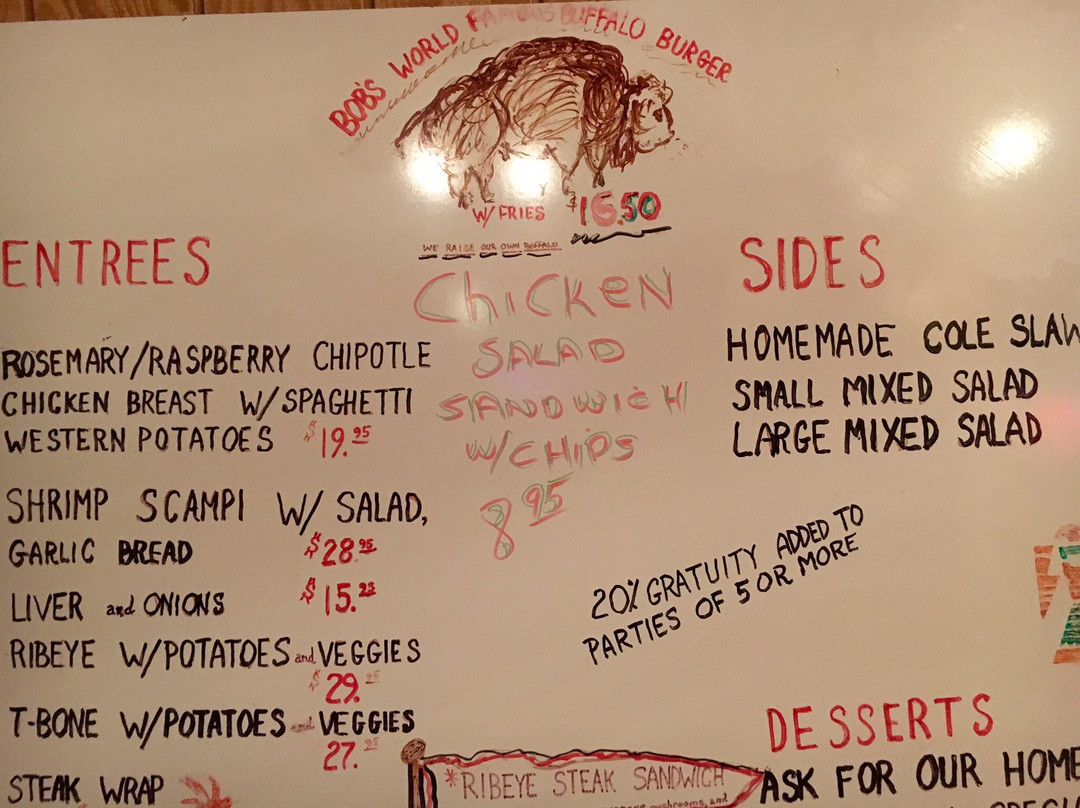 BOB'S WORLD FAMOUS BUFFALO BURGER
W/ FRIES $16.50
WE RAISE OUR OWN BUFFALO
ENTREES
ROSEMARY/RASPBERRY CHIPOTLE
CHICKEN BREAST W/SPAGHETTI
WESTERN POTATOES $19.95
SHRIMP SCAMPI W/ SALAD,
GARLIC BREAD $28.95
LIVER and ONIONS
RIBEYE W/POTATOES and VEGGIES
$29.95
T-BONE W/POTATOES and VEGGIES
27.95
STEAK WRAP
CHICKEN
SALAD
SANDWICH
W/CHIPS
8.95
SIDES
HOMEMADE COLE SLAW
SMALL MIXED SALAD
LARGE MIXED SALAD
20% GRATUITY ADDED TO
PARTIES OF 5 OR MORE
DESSERTS
ASK FOR OUR HOME
*RIBEYE STEAK SANDWICH
mushrooms, and